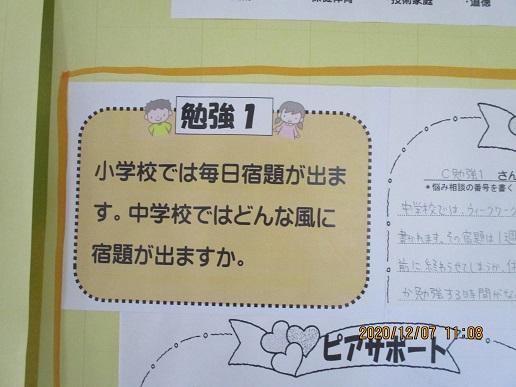 技術家庭
・道徳
勉強1
小学校では毎日宿題が出ま
す。中学校ではどんな風に
宿題が出ますか。
C勉強1 さん
*悩み相談の番号を書く
中学校では、ウィークワーク
前に終わらせてしまうか、
か勉強する時間がな
2020/12/07 11:08
ピアサポート